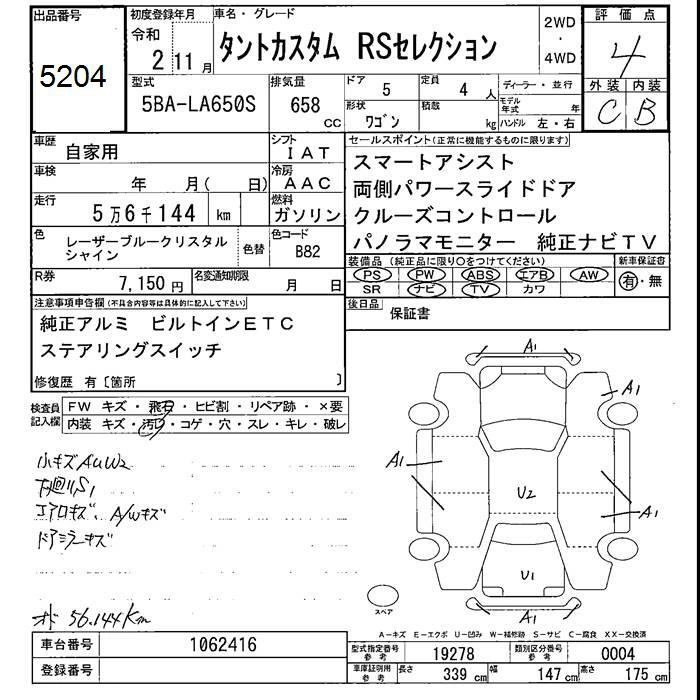 出品番号
5204
初度登録年月
令和
2 11月
車名・グレード
タントカスタム RSセレクション
2WD
・
4WD
評価点
4
外装 内装
C B
型式
5BA-LA650S
排気量
658
CC
ドア 5
定員 4 人
形状 ワゴン
積載 kg
ディーラー・並行
モデル年式 年
ハンドル 左・右
車歴 自家用
シフト IAT
車検 年 月( 日)
冷房 AAC
走行 5万6千144 km
燃料 ガソリン
色 レーザーブルークリスタルシャイン
色替
色コード B82
R券 7,150円
名変通知期限 月 日
セールスポイント(正常に機能するものに限ります)
スマートアシスト
両側パワースライドドア
クルーズコントロール
パノラマモニター 純正ナビTV
装備品(純正品に限り○をつけてください)
新車保証書
PS PW ABS エアB AW
SR ナビ TV カワ
有・無
後日品 保証書
注意事項申告欄(不具合内容等は具体的に記入して下さい)
純正アルミ ビルトインETC
ステアリングスイッチ
修復歴 有〔箇所 〕
検査員記入欄
FW キズ・飛石・ヒビ割・リペア跡・×要
内装 キズ・汚れ・コゲ・穴・スレ・キレ・破レ
小キズAUW2
下廻りS1
エアロキズ、A/Wキズ
ドアミラーキズ
オド 56.144Km
A1
A1
A1
U2
A1
U1
A1
スペア
A-キズ E-エクボ U-凹み W-補修跡 S-サビ C-腐食 XX-交換済
車台番号 1062416
登録番号
型式指定番号参考 19278
類別区分番号参考 0004
車庫証明用参考 長さ 339 cm 幅 147 cm 高さ 175 cm